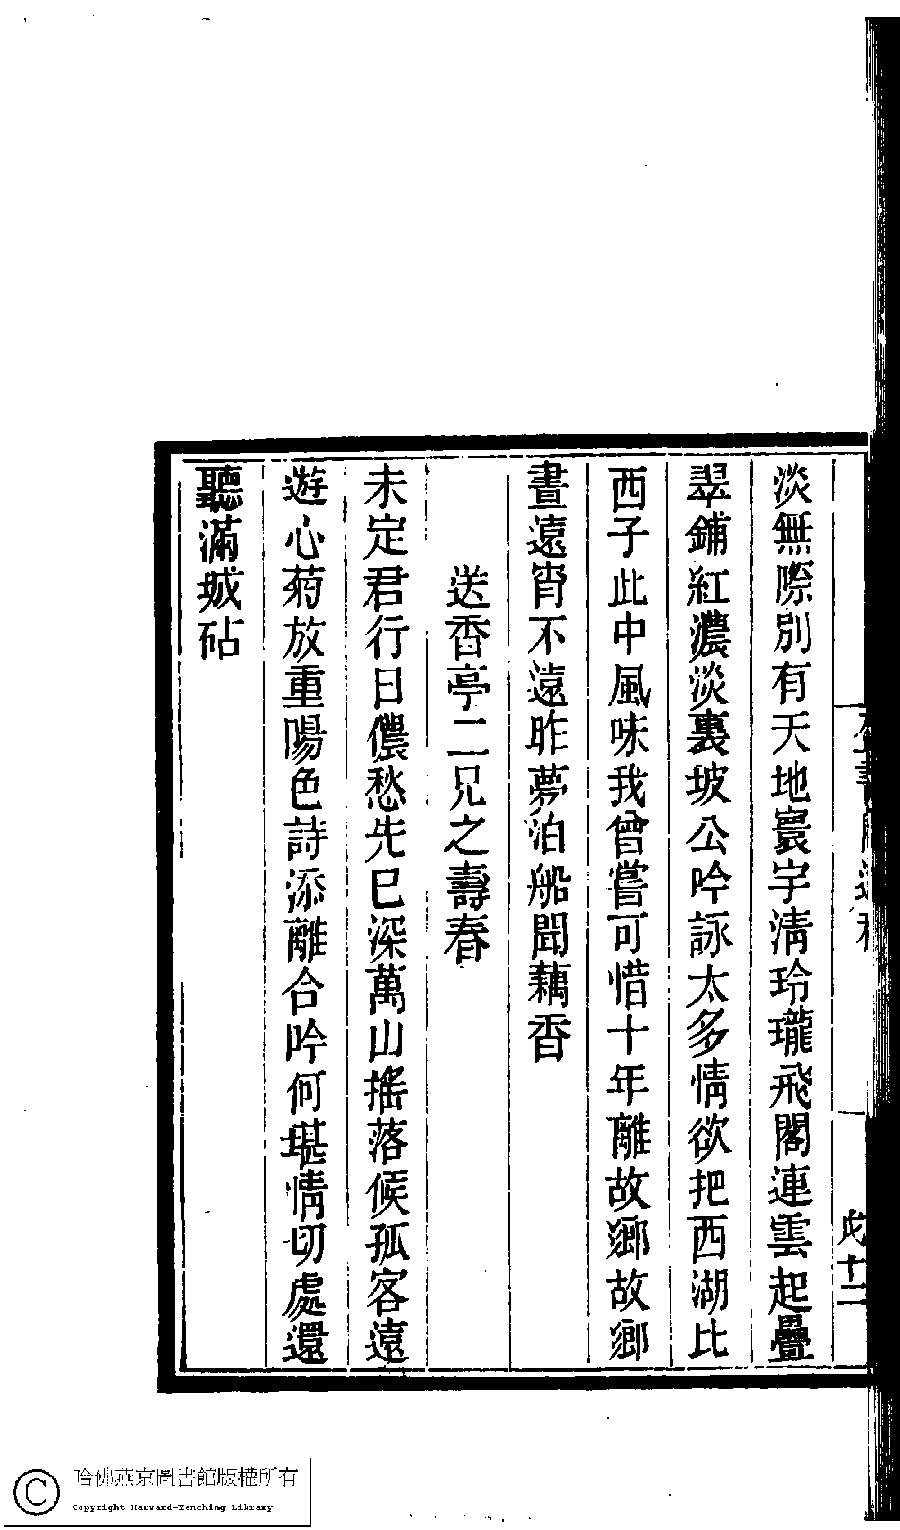 淡無際別有天地寰宇淸玲瓏飛閣連雲起疊
翠鋪紅濃淡裏坡公吟詠太多情欲把西湖比
西子此中風味我曾嘗可惜十年離故鄉故鄉
晝遠宵不遠昨夢泊船聞藕香
送香亭二兄之壽春
未定君行日儂愁先已深萬山搖落候孤客遠
遊心菊放重陽色詩添離合吟何堪情切處還
聽滿城砧
十二
哈佛燕京圖書館版權所有
Copyright Harvard-Yenching Library